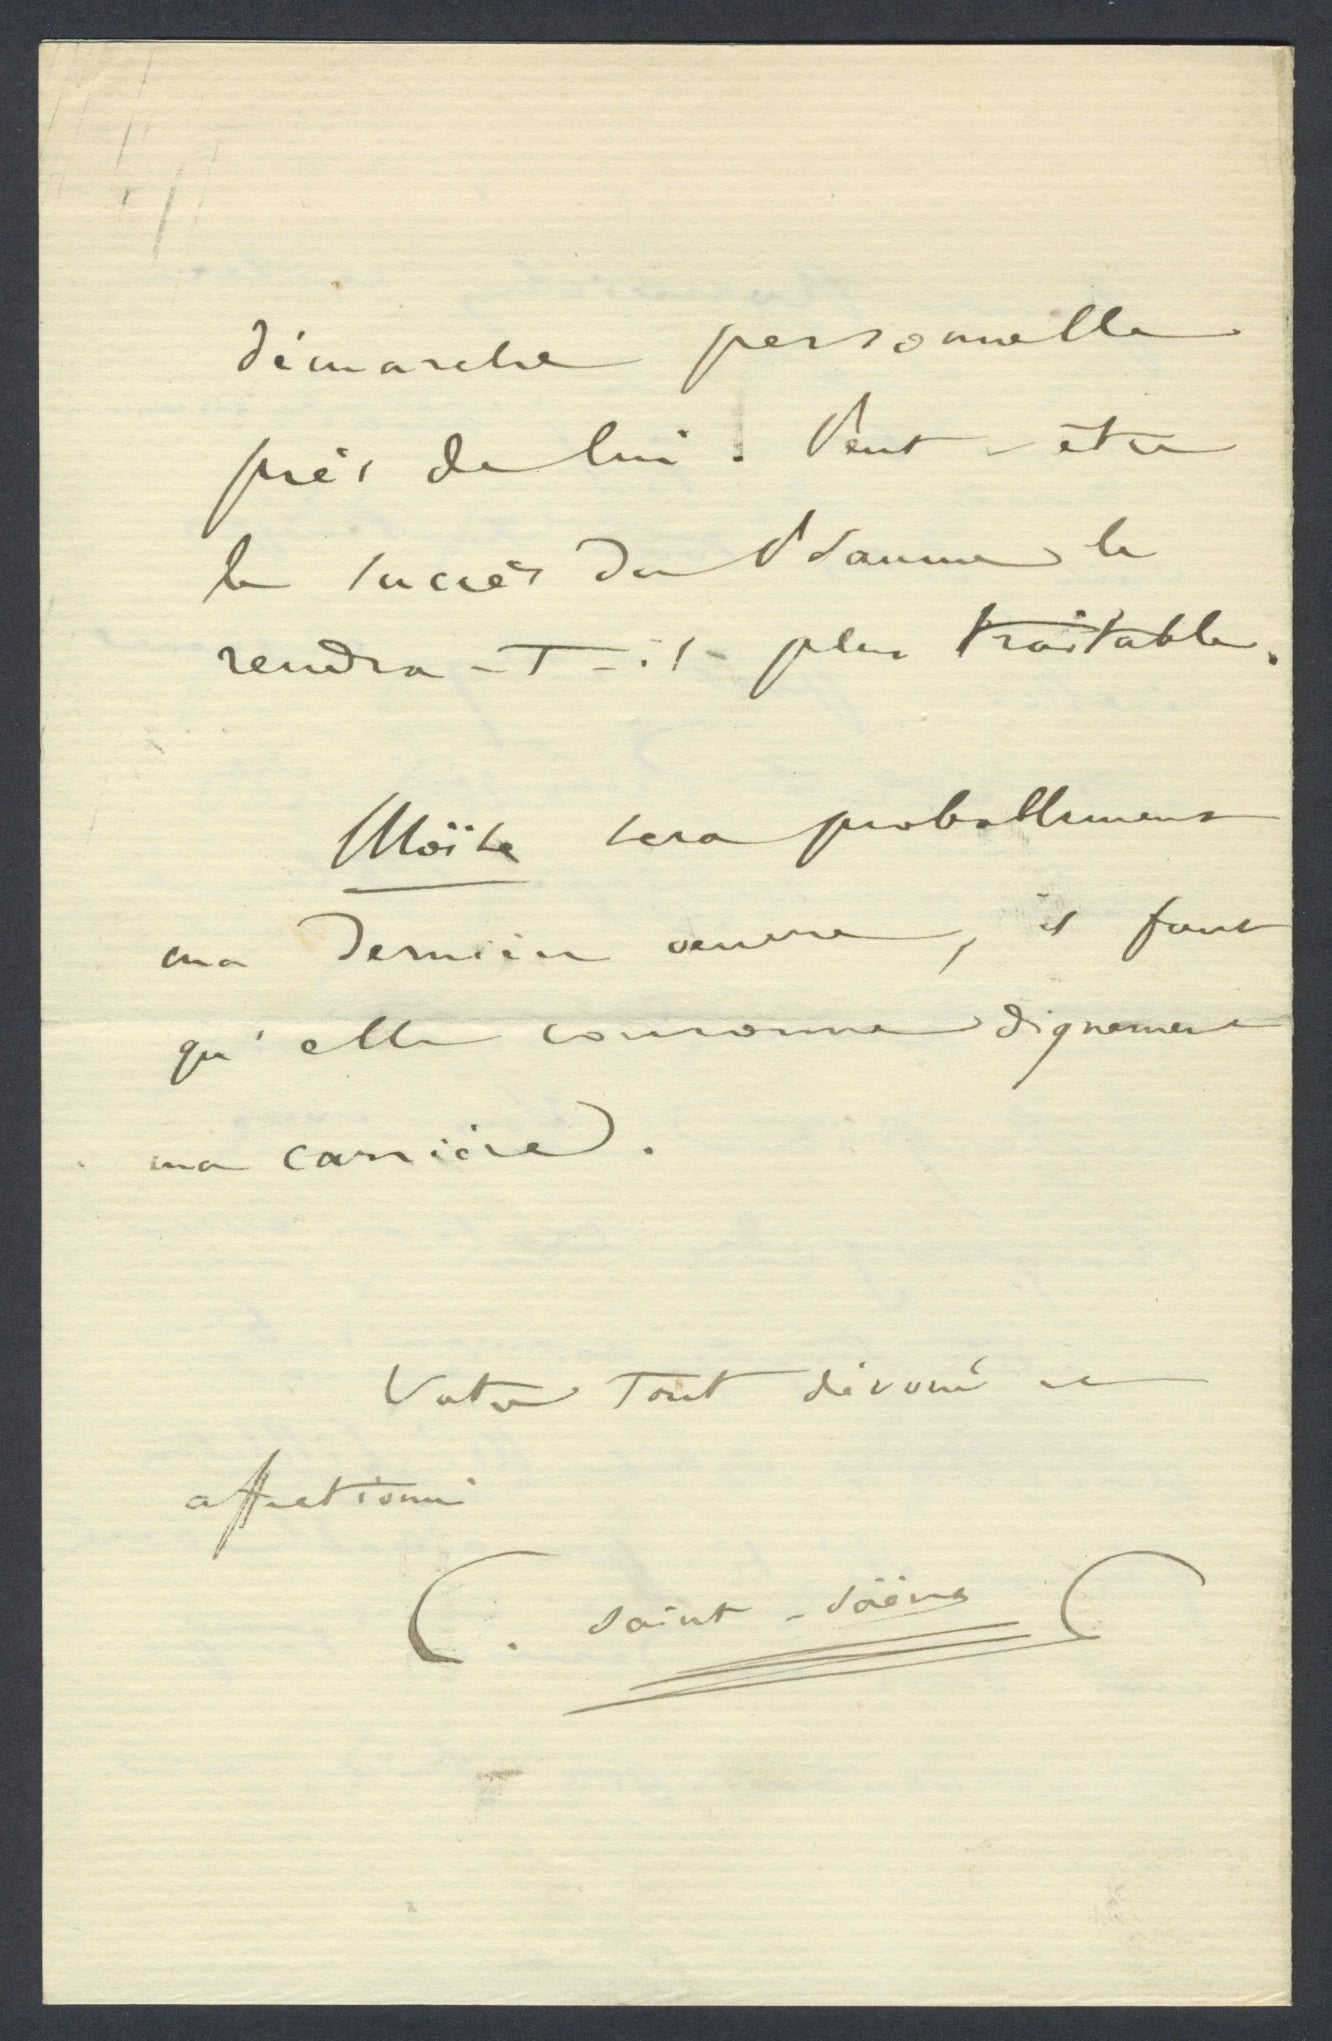 démarche personnelle
près de lui. Peut-être
le succès du Psaume le
rendra-t-il plus traitable.
Moïse sera probablement
ma dernière œuvre, il faut
qu'elle couronne dignement
ma carrière.
Votre tout dévoué et
affectionné
C. Saint-Saëns